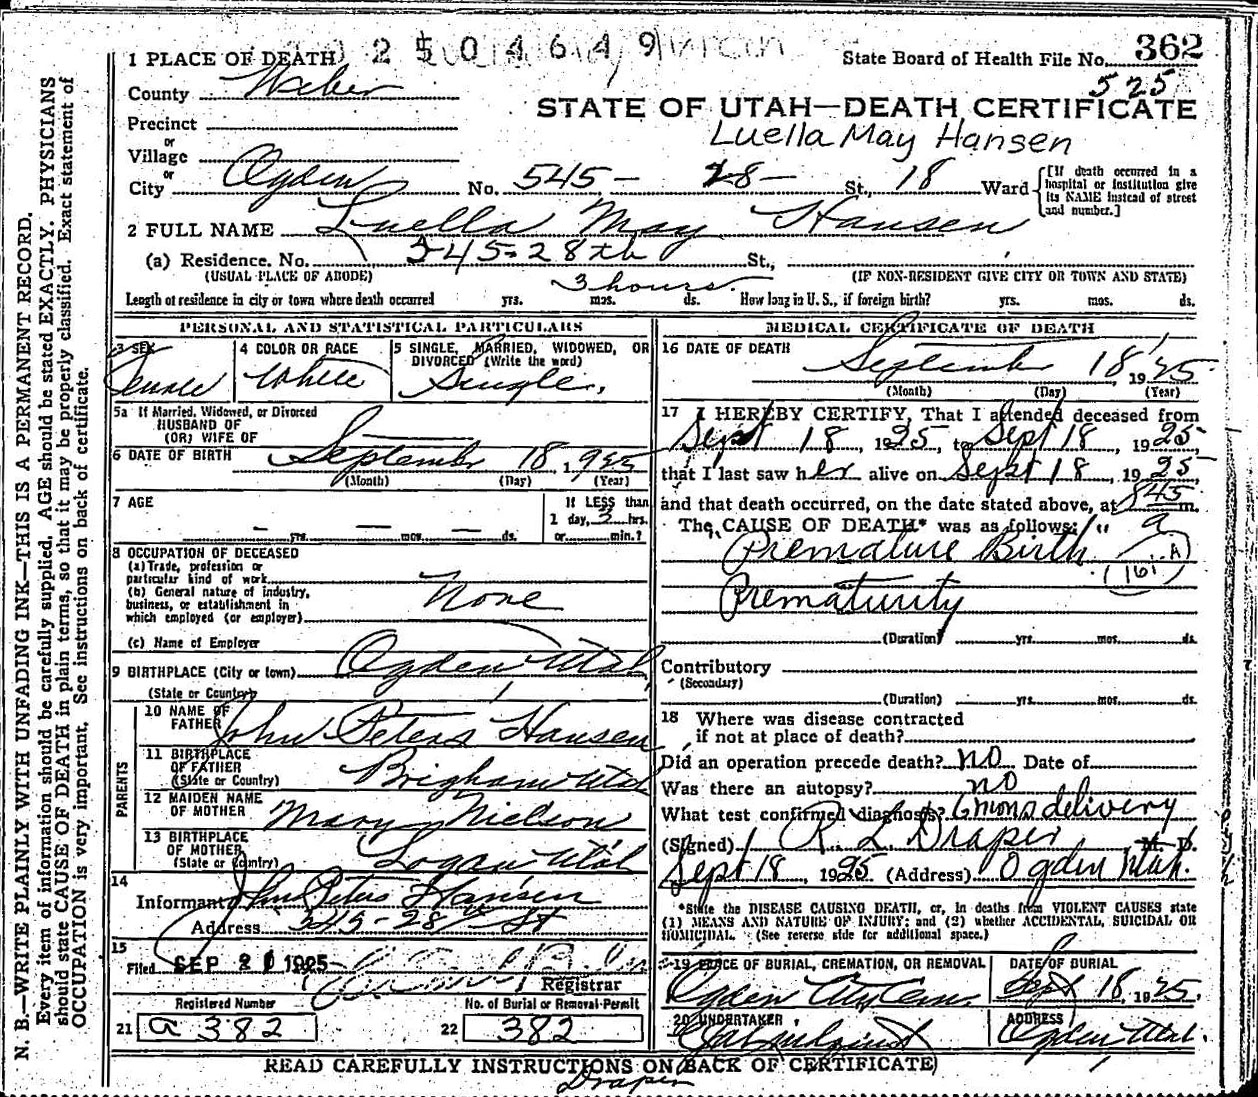 1 PLACE OF DEATH 2504649
State Board of Health File No. 362
525
County Weber
STATE OF UTAH—DEATH CERTIFICATE
Precinct
Luella May Hansen
or
Village
or
City Ogden No. 545- 28- St., 18 Ward
[If death occurred in a hospital or institution give its NAME instead of street and number.]
2 FULL NAME Luella May Hansen
(a) Residence. No. 545-28th St.,
(USUAL PLACE OF ABODE) (IF NON-RESIDENT GIVE CITY OR TOWN AND STATE)
3 hours.
Length of residence in city or town where death occurred yrs. mos. ds. How long in U. S., if foreign birth? yrs. mos. ds.
PERSONAL AND STATISTICAL PARTICULARS
3 SEX Female
4 COLOR OR RACE White
5 SINGLE, MARRIED, WIDOWED, OR DIVORCED (Write the word) Single.
5a If Married, Widowed, or Divorced
HUSBAND OF
(OR) WIFE OF
6 DATE OF BIRTH September 18 1925
(Month) (Day) (Year)
7 AGE
If LESS than
1 day, 3 hrs.
yrs. mos. ds. or min.?
8 OCCUPATION OF DECEASED
(a) Trade, profession or
particular kind of work
(b) General nature of industry,
business, or establishment in
which employed (or employer)
None
(c) Name of Employer
9 BIRTHPLACE (City or town) Ogden Utah
(State or Country)
PARENTS
10 NAME OF FATHER John Peters Hansen
11 BIRTHPLACE OF FATHER (State or Country) Brigham Utah
12 MAIDEN NAME OF MOTHER Mary Nielson
13 BIRTHPLACE OF MOTHER (State or Country) Logan Utah
14
Informant John Peters Hansen
Address 545-28th St
15
Filed SEP 21 1925
Registrar
Registered Number
21 a 382
No. of Burial or Removal Permit
22 382
MEDICAL CERTIFICATE OF DEATH
16 DATE OF DEATH
September 18, 1925
(Month) (Day) (Year)
17 I HEREBY CERTIFY, That I attended deceased from
Sept 18, 1925, to Sept 18, 1925
that I last saw her alive on Sept 18, 1925
and that death occurred, on the date stated above, at 845 m.
The CAUSE OF DEATH* was as follows: a
Premature Birth
161 A
Prematurity
(Duration) yrs. mos. ds.
Contributory
(Secondary)
(Duration) yrs. mos. ds.
18 Where was disease contracted
if not at place of death?
Did an operation precede death? no Date of
Was there an autopsy? no
What test confirmed diagnosis? 6 mons delivery
(Signed) R. L. Draper M. D.
Sept 18, 1925 (Address) Ogden Utah.
*State the DISEASE CAUSING DEATH, or, in deaths from VIOLENT CAUSES state
(1) MEANS AND NATURE OF INJURY; and (2) whether ACCIDENTAL, SUICIDAL OR
HOMICIDAL. (See reverse side for additional space.)
19 PLACE OF BURIAL, CREMATION, OR REMOVAL
Ogden City Cem.
DATE OF BURIAL
Sept 18, 1925.
20 UNDERTAKER
ADDRESS
Ogden Utah.
READ CAREFULLY INSTRUCTIONS ON BACK OF CERTIFICATE
Draper
N. B.—WRITE PLAINLY WITH UNFADING INK—THIS IS A PERMANENT RECORD.
Every item of information should be carefully supplied. AGE should be stated EXACTLY. PHYSICIANS
should state CAUSE OF DEATH in plain terms, so that it may be properly classified. Exact statement of
OCCUPATION is very important. See instructions on back of certificate.